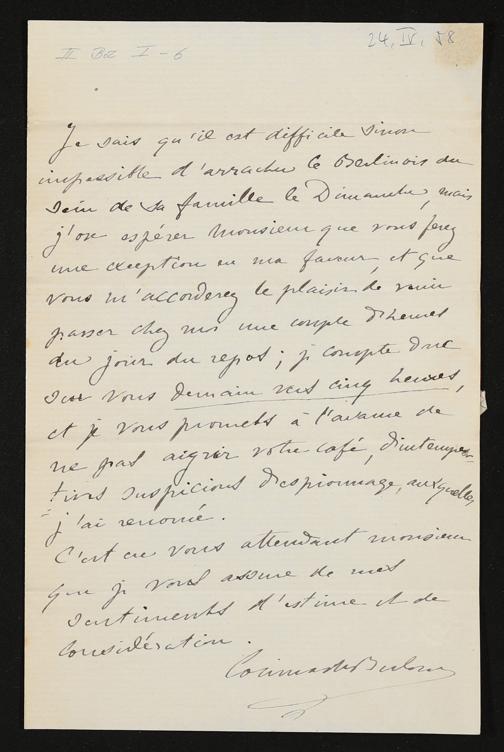 II Bz I-6
24. IV. 58
Je sais qu'il est difficile sinon
impossible d'arracher le Berlinois du
sein de sa famille le Dimanche, mais
j'ose espérer Monsieur que vous ferez
une exception en ma faveur, et que
vous m'accorderez le plaisir de venir
passer chez moi une couple d'heures
du jour du repos; je compte donc
sur vous demain vers cinq heures,
et je vous promets à l'avance de
ne pas aigrir votre café, d'intempes-
tives suspicions d'espionnage, auxquelles
j'ai renoncé.
C'est en vous attendant monsieur
que je vous assure de mes
sentiments d'estime et de
considération.
Cosima de Bulow